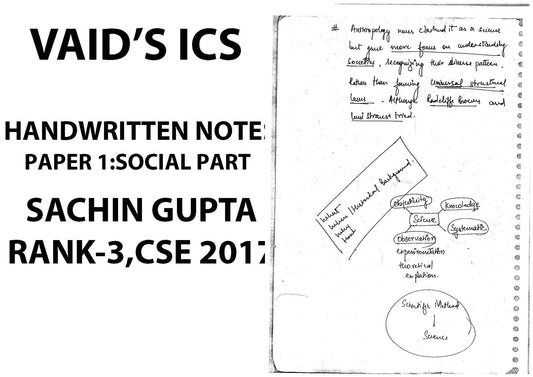 VAID'S ICS
HANDWRITTEN NOTES
PAPER 1:SOCIAL PART
SACHIN GUPTA
RANK-3,CSE 2017
# Anthropology never claimed it as a science
but gave more focus on understanding
societies, recognizing their diverse pattern.
Rather than forming universal structural
laws. Although Radcliffe Brown and
Levi Strauss tried.
What
When / Historical Background.
Why
How
Objectivity
Knowledge
Science
Systematic
Observation
experimentation
theoretical
Scientific Method
↓
Science